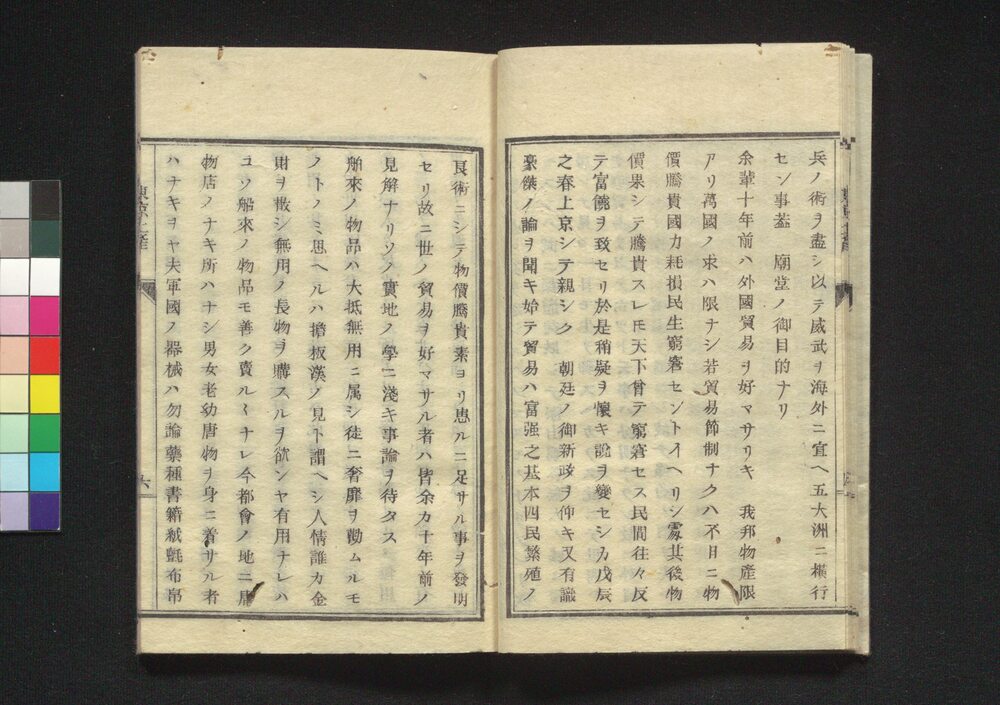 兵ノ術ヲ盡シ以テ威武ヲ海外ニ宣ヘ五大洲ニ横行
セン事蓋　廟堂ノ御目的ナリ
余輩十年前ハ外國貿易ヲ好マサリキ　我邦物産限
アリ萬國ノ求ハ限ナシ若貿易節制ナクハ不日ニ物
價騰貴國力耗損民生窮窘セントイヘリシ處其後物
價果シテ騰貴スレモ天下曾テ窮窘セス民間往々反
テ富饒ヲ致セリ於是稍疑ヲ懐キ説ヲ變セシカ戊辰
之春上京シテ親シク　朝廷ノ御新政ヲ仰キ又有識
豪傑ノ論ヲ聞キ始テ貿易ハ富强之基本四民繁殖ノ
良術ニシテ物價騰貴素ヨリ患ルニ足サル事ヲ發明
セリ故ニ世ノ貿易ヲ好マサル者ハ皆余カ十年前ノ
見解ナリソノ實地ノ學ニ淺キ事論ヲ待タス
舶來ノ物品ハ大抵無用ニ属シ徒ニ奢靡ヲ勸ムルモ
ノトノミ思ヘルハ擔板漢ノ見ト謂ヘシ人情誰カ金
財ヲ散シ無用ノ長物ヲ購スルヲ欲ンヤ有用ナレハ
コソ舶來ノ物品モ善ク賣ルヽナレ今都會ノ地ニ唐
物店ノナキ所ハナシ男女老幼唐物ヲ身ニ着サル者
ハナキヲヤ夫軍國ノ器械ハ勿論藥種書籍絨氈布帛
六